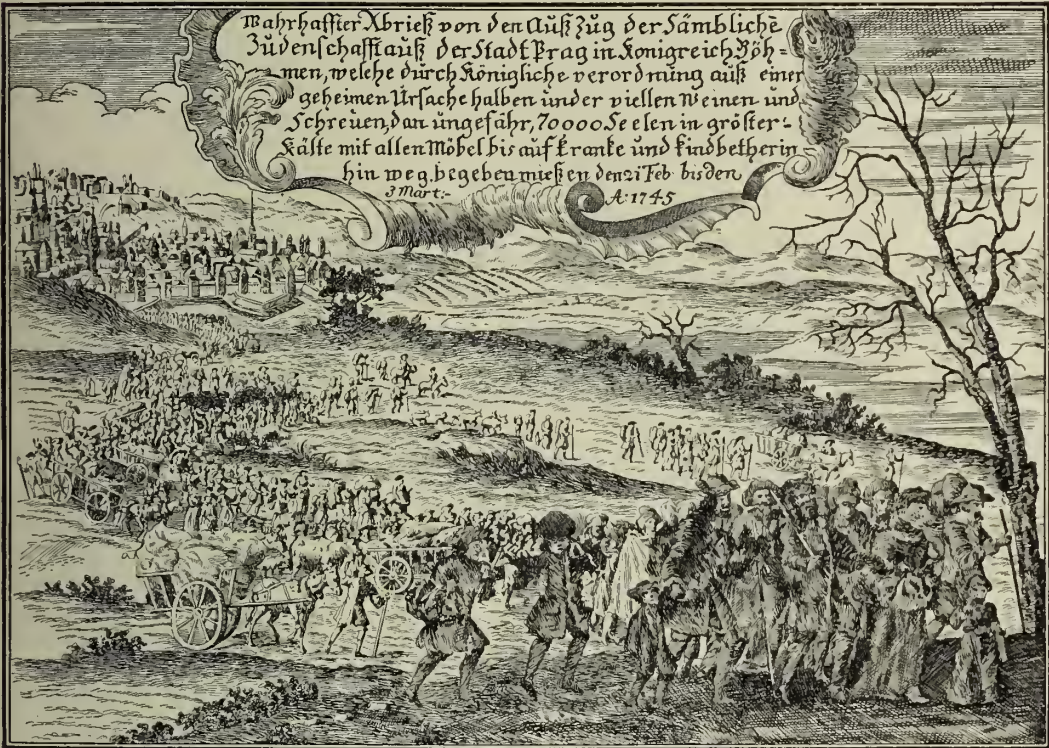 Warhaffter Abrieß von den Außzug der Sämbliche
Judenschafft auß der Stadt Prag in Konigreich Böh=
men, welche dürch Königliche verordnung auß einer
geheimen Ursache halben under viellen Weinen und
Schreuen, dan ungefähr, 70000 Seelen in gröster=
Kälte mit allen Möbel bis auf kranke und kindbetherin
hin weg begeben mießen den 21 Feb bis den
3 Mart:- A: 1745